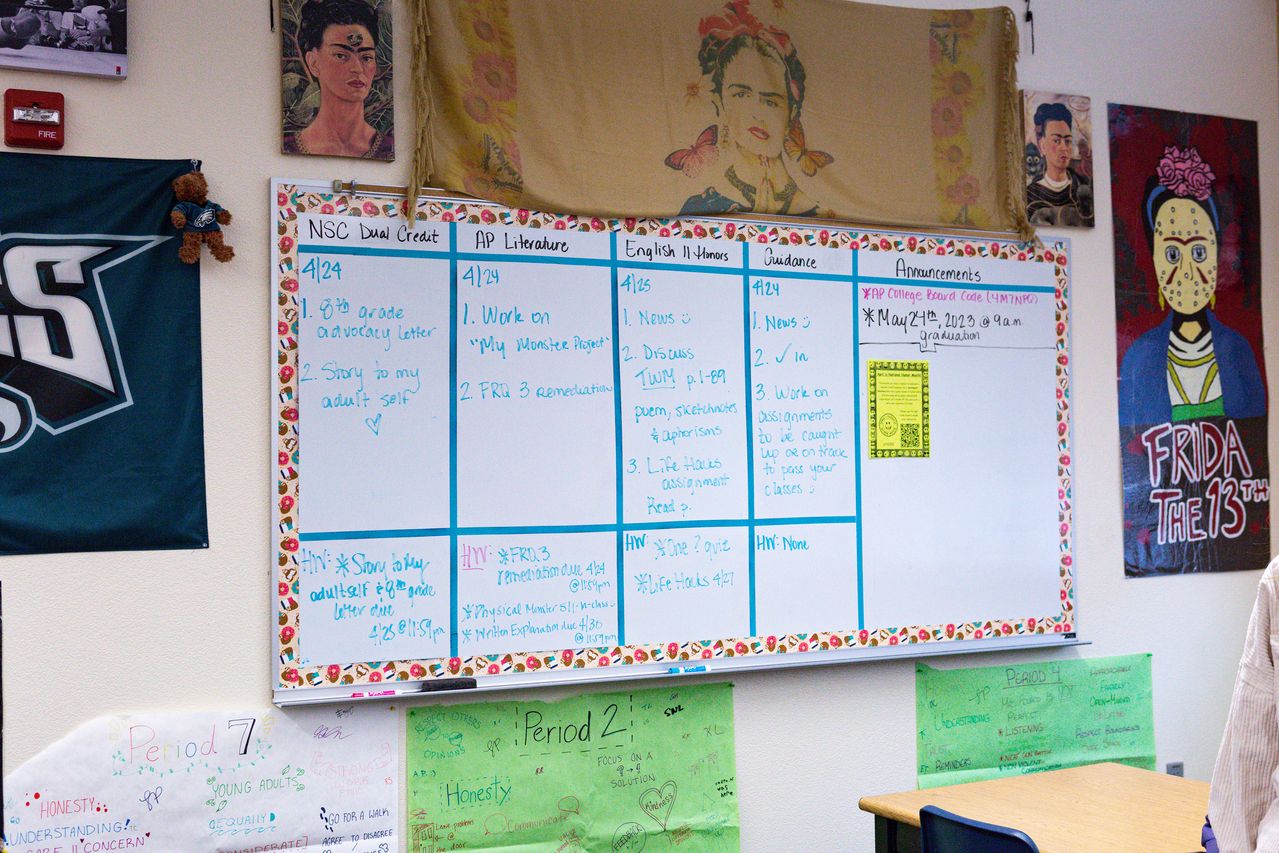 FIRE
NSC Dual Credit
4/24
1. 8th grade
advocacy letter
2. Story to my
adult self
HW: *Story to My
adult self & 8th grade
letter due
4/25 @ 11:59pm
AP Literature
4/24
1. Work on
"My Monster Project"
2. FRQ 3 remediation
HW: *FRQ3
remediation due 4/24
@ 11:59pm
*Physical Monster 5/1 in-class
*Written Explanation due 4/30
@ 11:59pm
English 11 Honors
4/25
1. News
2. Discuss
TWM p. 1-89
poem, sketchnotes
& aphorisms
3. Life Hacks
assignment
Read p.
HW: *One ? quiz
*Life Hacks 4/27
Guidance
4/24
1. News
2. ✓ in
3. Work on
assignments
to be caught
up or on track
to pass your
classes
HW: None
Announcements
*AP College Board Code (4M7NPQ)
*May 24th, 2023 @ 9 a.m.
graduation
FRIDA
THE 13TH
Period 7
HONESTY
UNDERSTANDING!
CARE 11 CONCERN
YOUNG ADULTS
EQUALLY
CONSIDERATE
GO FOR A WALK
AGREE TO DISAGREE
RESPECT OTHERS
OPINIONS
Period 2
Honesty
Communicate
FOCUS ON A
SOLUTION
Kindness
FEEDBACK
Leave problems
@
the door
Period 4
UNDERSTANDING
TRUST
REMINDERS
RESPECT
*LISTENING
FRIENDLY
OPEN-MINDED
RESPECT BOUNDARIES
SAFE SPACE